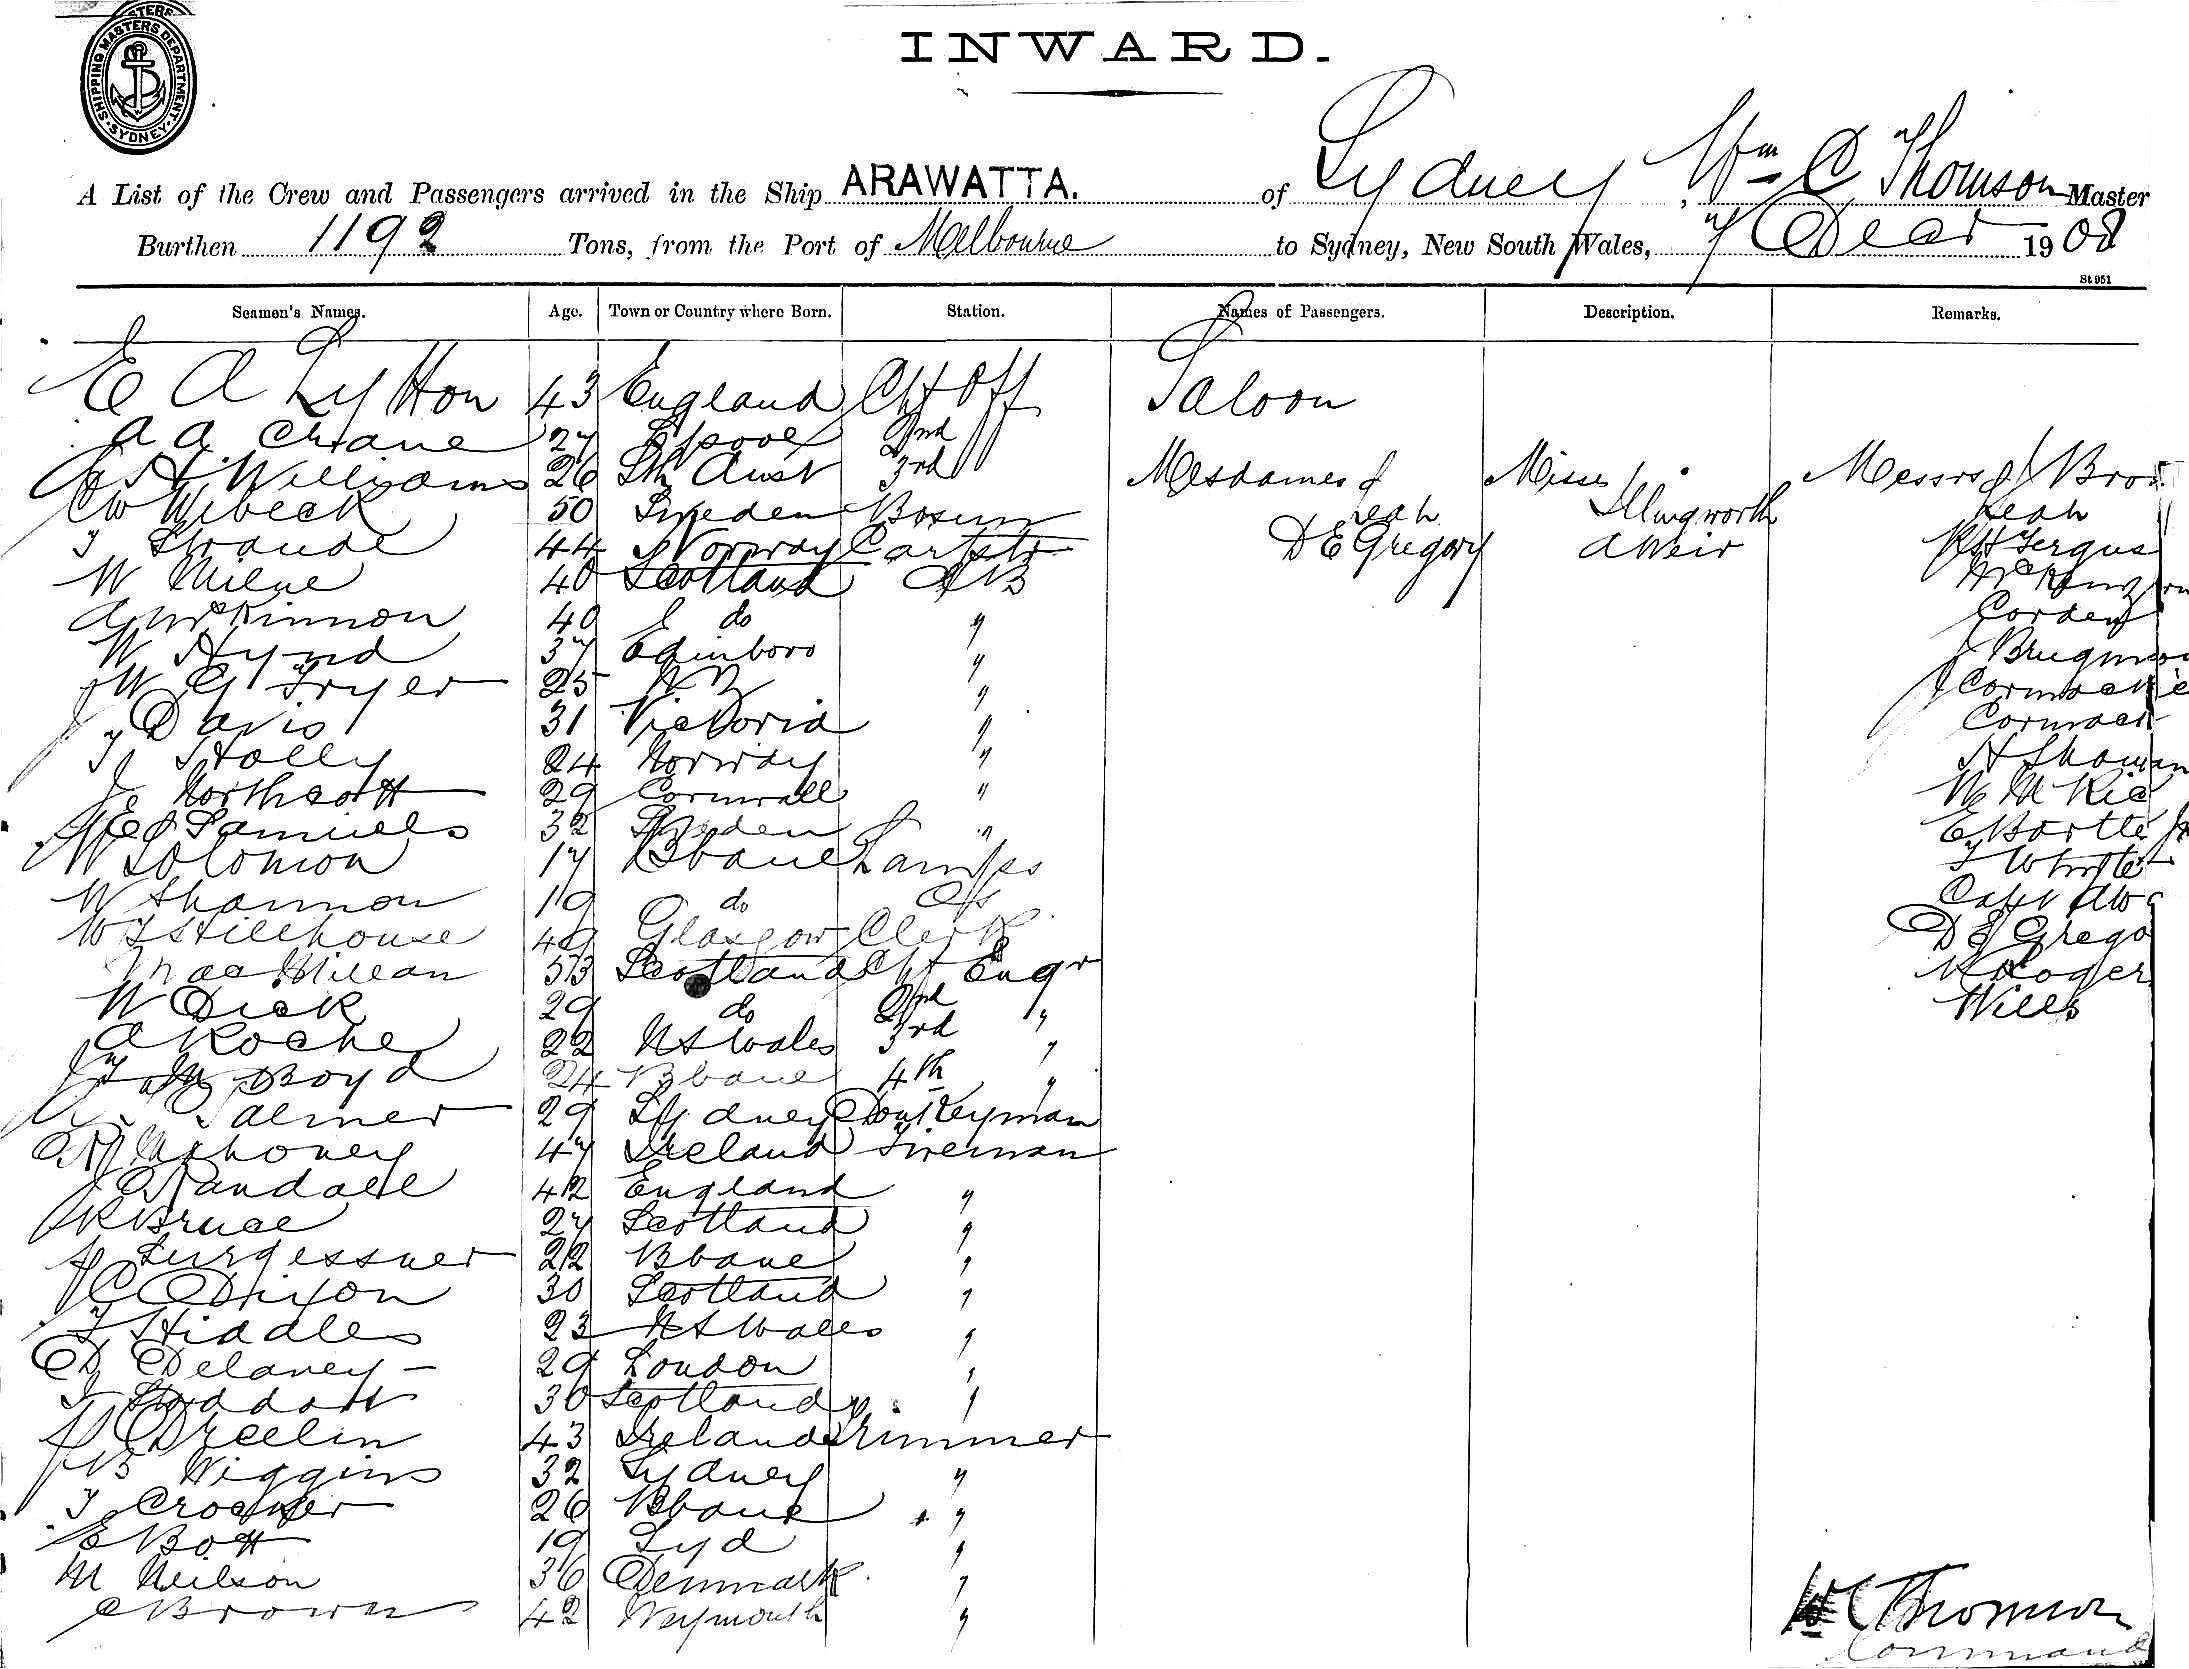 SHIPPING MASTERS DEPARTMENT. SYDNEY.
INWARD.
A List of the Crew and Passengers arrived in the Ship ARAWATTA. of Sydney, Wm C Thomson Master
Burthen 1192 Tons, from the Port of Melbourne to Sydney, New South Wales, 7 Decr 1908
St 951
Seamen's Names. Age. Town or Country where Born. Station. Names of Passengers. Description. Remarks.
E A Lytton 43 England Chf Off Saloon
A A Crane 27 L'pool 2nd
A H Williams 26 Sth Aust 3rd Mesdames Misses Messrs J Bro
C W Wibeck 50 Sweden Bosun Leah Illingworth Leah
T Strande 44 Norway D E Gregory A Weir Fergus
W Milne 40 Scotland AB
A McKinnon 40 do " Corden
W Hynd 37 Edinboro "
W G Fryer 25 N Z " Cormack
J Davis 31 Victoria " Cormack
T Holly 24 Norway "
J Northcott 29 Cornwall " W M Kie
Samuels 32 Sweden "
W Solomon 17 Bbane Lamps
W Shannon 19 do O/S Capt
W T Stillhouse 49 Glasgow Clerk D E Grego
MacMillan 53 Scotland Chf Engr
W Dick 29 do 2nd " Wills
A Roche 22 N S Wales 3rd "
Boyd 24 Bbane 4th "
Palmer 29 Sydney Donkeyman
Mahoney 47 Ireland Fireman
Randall 42 England "
R Bruce 27 Scotland "
22 Bbane "
C Dixon 30 Scotland "
T Hiddles 23 N S Wales "
D Delaney 29 London "
T Stoddart 30 Scotland "
43 Ireland Trimmer
Wiggins 32 Sydney "
T 26 Bbane "
E Bott 19 Syd "
M Neilson 36 Denmark "
C Brown 42 Weymouth "
W C Thomson
Command